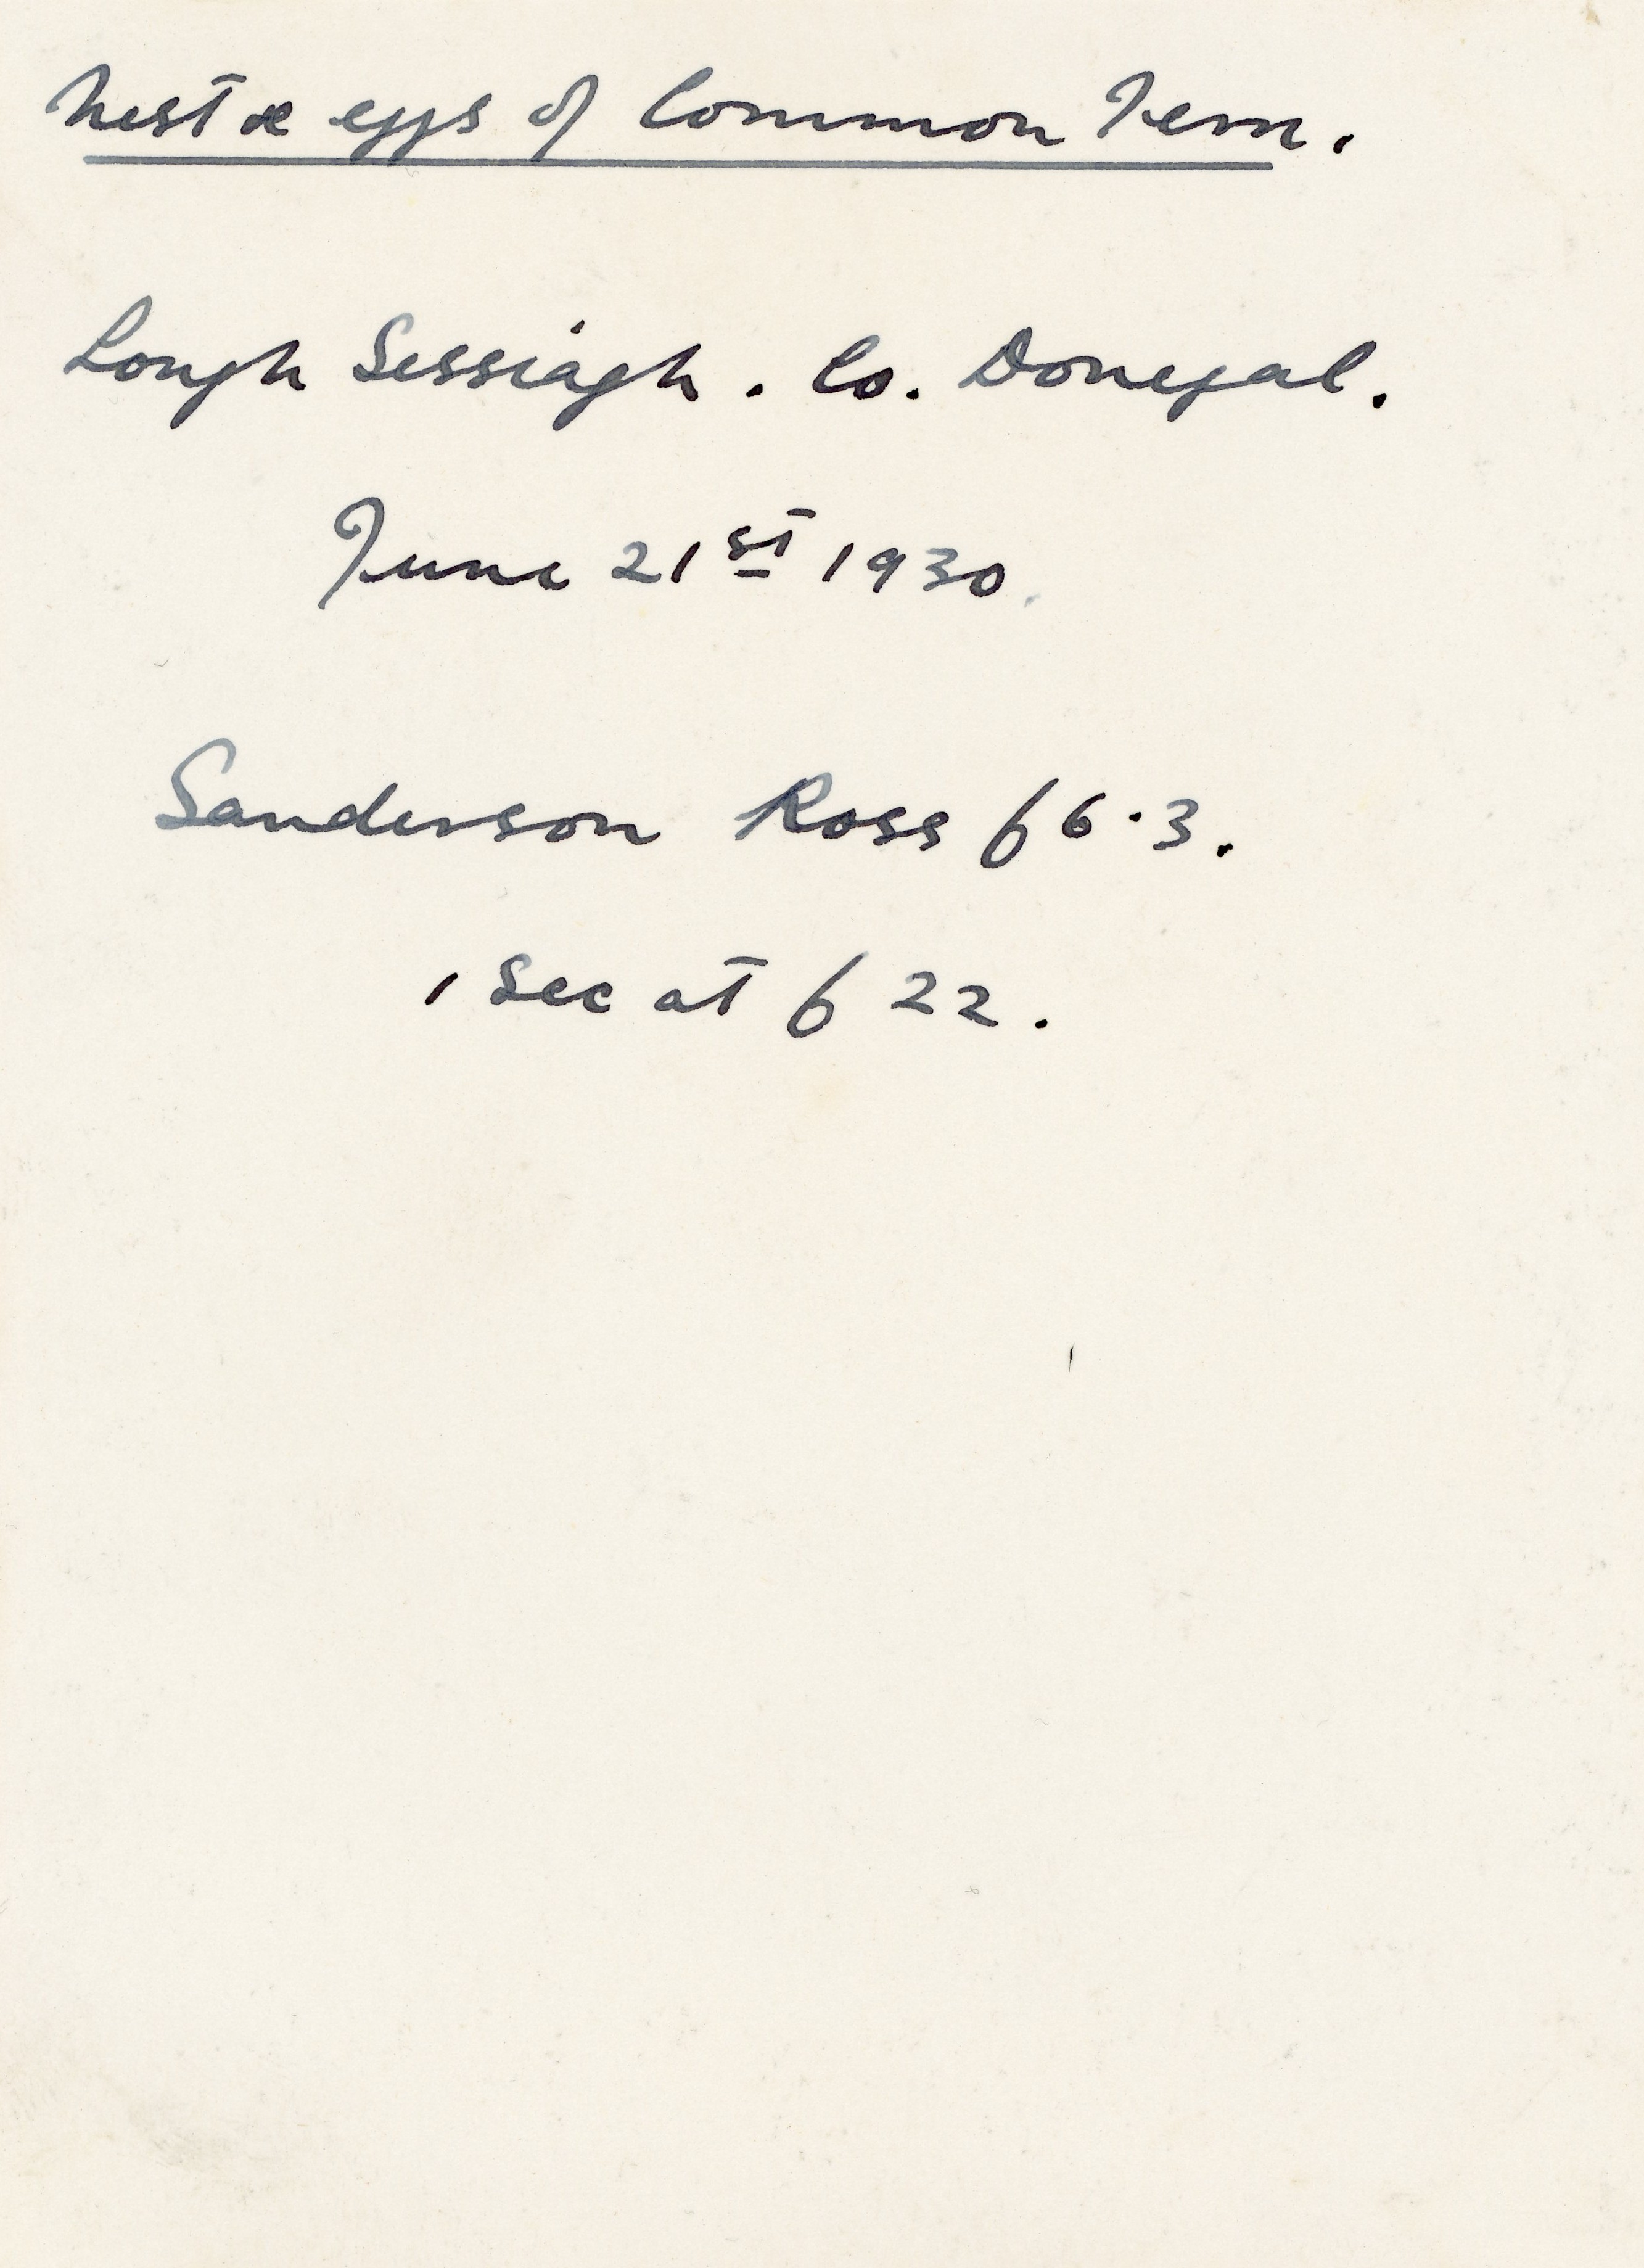 Nest & eggs of Common Tern.
Lough Sessiagh. Co. Donegal.
June 21st 1930.
Sanderson Ross f 6.3.
1 Sec at f 22.